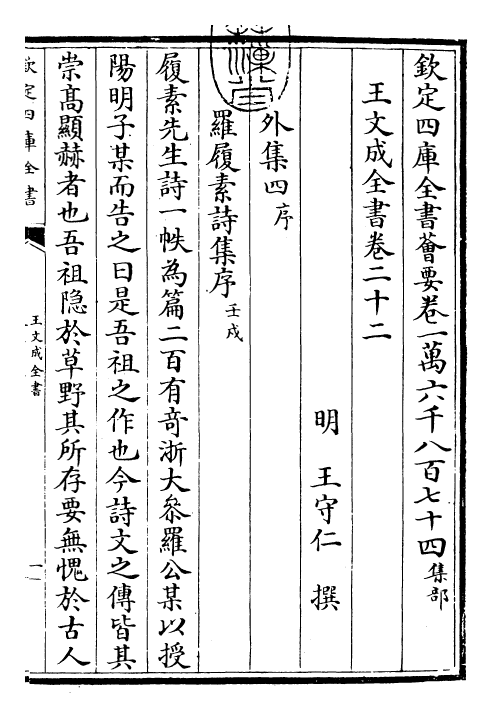 欽定四庫全書薈要卷一萬六千八百七十四集部
王文成全書卷二十二
明 王守仁 撰
外集四序
羅履素詩集序壬戌
履素先生詩一帙為篇二百有竒浙大叅羅公某以授
陽明子某而告之曰是吾祖之作也今詩文之傳皆其
崇髙顯赫者也吾祖隐於草野其所存要無愧於古人
欽定四庫全書
王文成全書
一